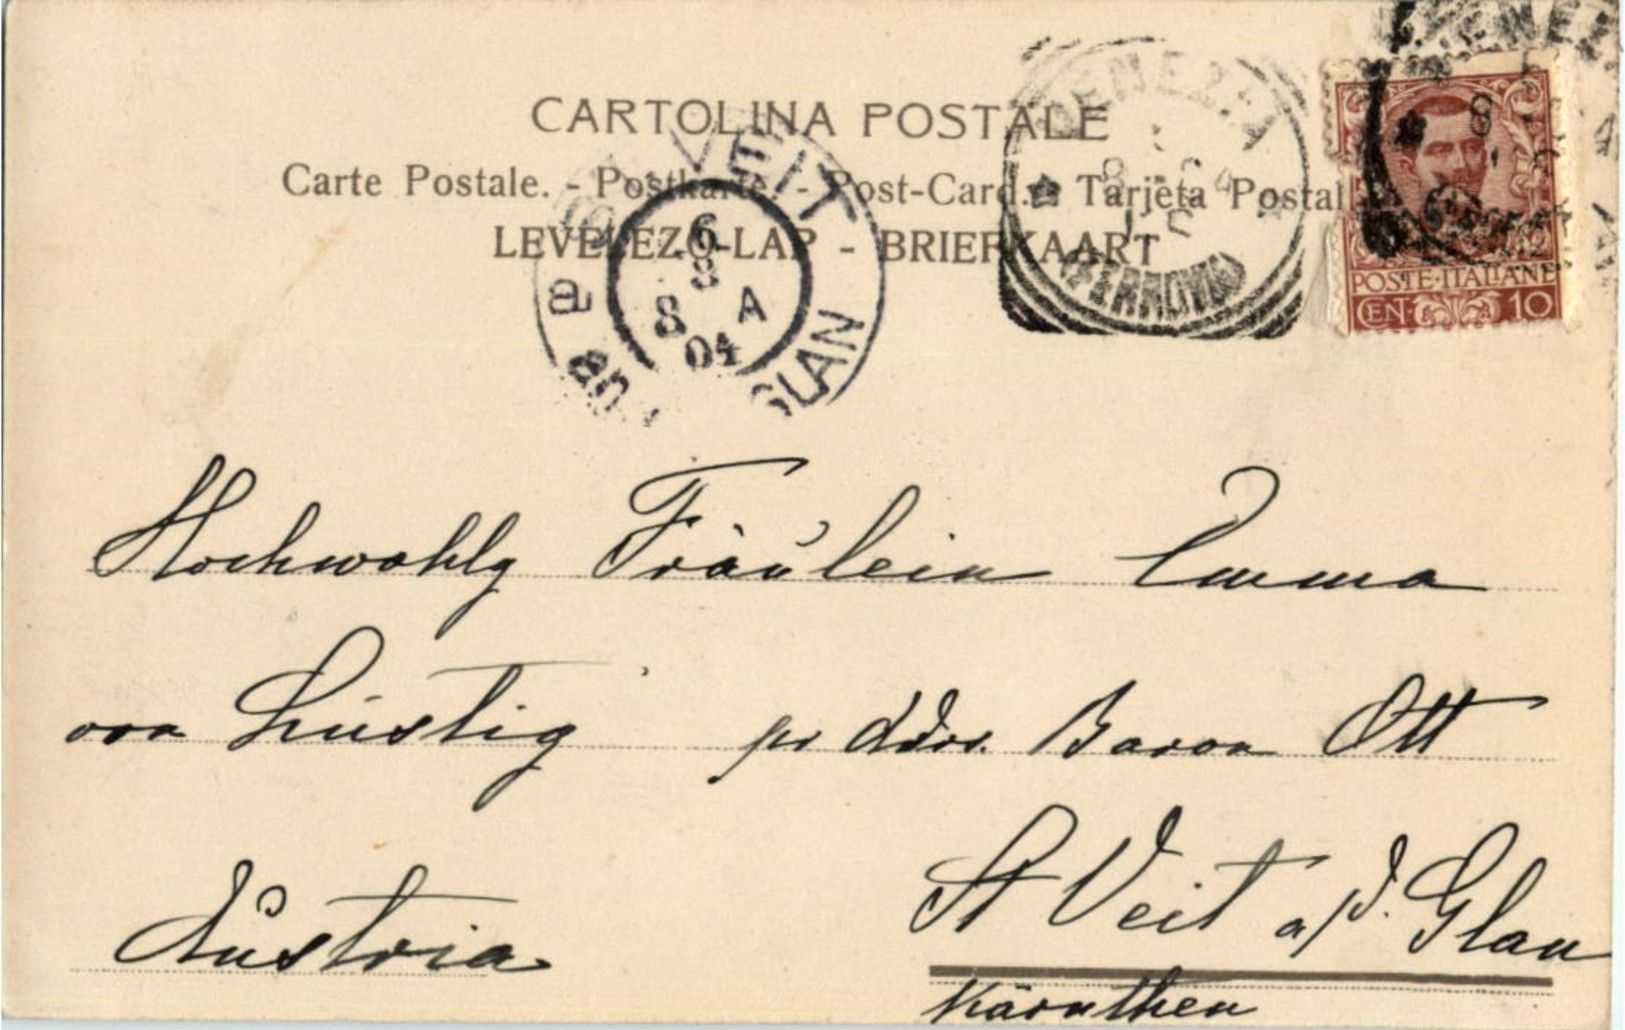 CARTOLINA POSTALE
Carte Postale. - Postkarte - Post-Card. - Tarjeta Postal
LEVELEZŐ-LAP - BRIEFKAART
ST. VEIT
GLAN
6
8
8 A
04
VENEZIA
(FERROVIA)
POSTE·ITALIANE
CEN· 10
Hochwohlg Fräulein Emma
von Lustig pr Adr. Baron Ott
St Veit a/d. Glan
Austria
Kärnthen